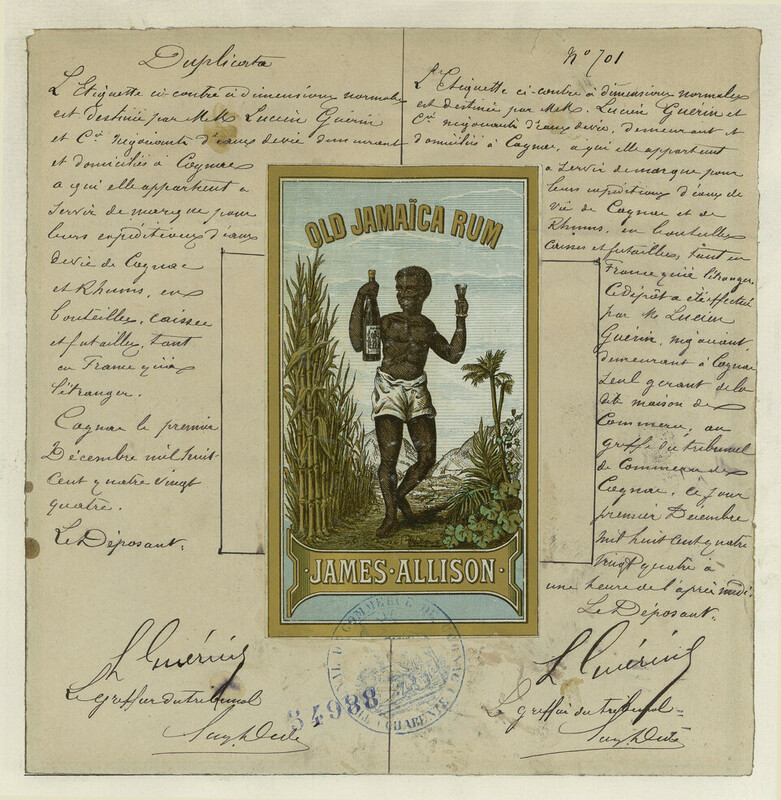 Duplicata
L'Etiquette ci-contre à dimensions normales
est destinée par MM. Lucien Guérin
et Cie négociants d'eaux de vie demeurant
et domiciliés à Cognac
à qui elle appartient à
servir de marque pour
leurs expéditions d'eaux
de vie de Cognac
et Rhums, en
bouteilles, caisses
et futailles, tant
en France qu'à
l'étranger.
Cognac le premier
Décembre mil huit
cent quatre vingt
quatre.
Le Déposant.
L Guérin
Le greffier du tribunal
No 701
L'Etiquette ci-contre à dimensions normales
est destinée par MM. Lucien Guérin et
Cie négociants d'eaux de vie, demeurant et
domiciliés à Cognac, à qui elle appartient
à servir de marque pour
leurs expéditions d'eaux de
vie de Cognac et de
Rhums, en bouteilles
caisses et futailles, tant en
France qu'à l'étranger.
Ce dépôt a été effectué
par M Lucien
Guérin, négociant,
demeurant à Cognac
seul gérant de la
dite maison de
Commerce, au
greffe du tribunal
de Commerce de
Cognac, ce jour
premier Décembre
mil huit cent quatre
vingt quatre à
une heure de l'après midi.
Le Déposant.
L Guérin
Le greffier du tribunal
OLD JAMAÏCA RUM
JAMES·ALLISON
54988
COMMERCE DE
CHARENTE